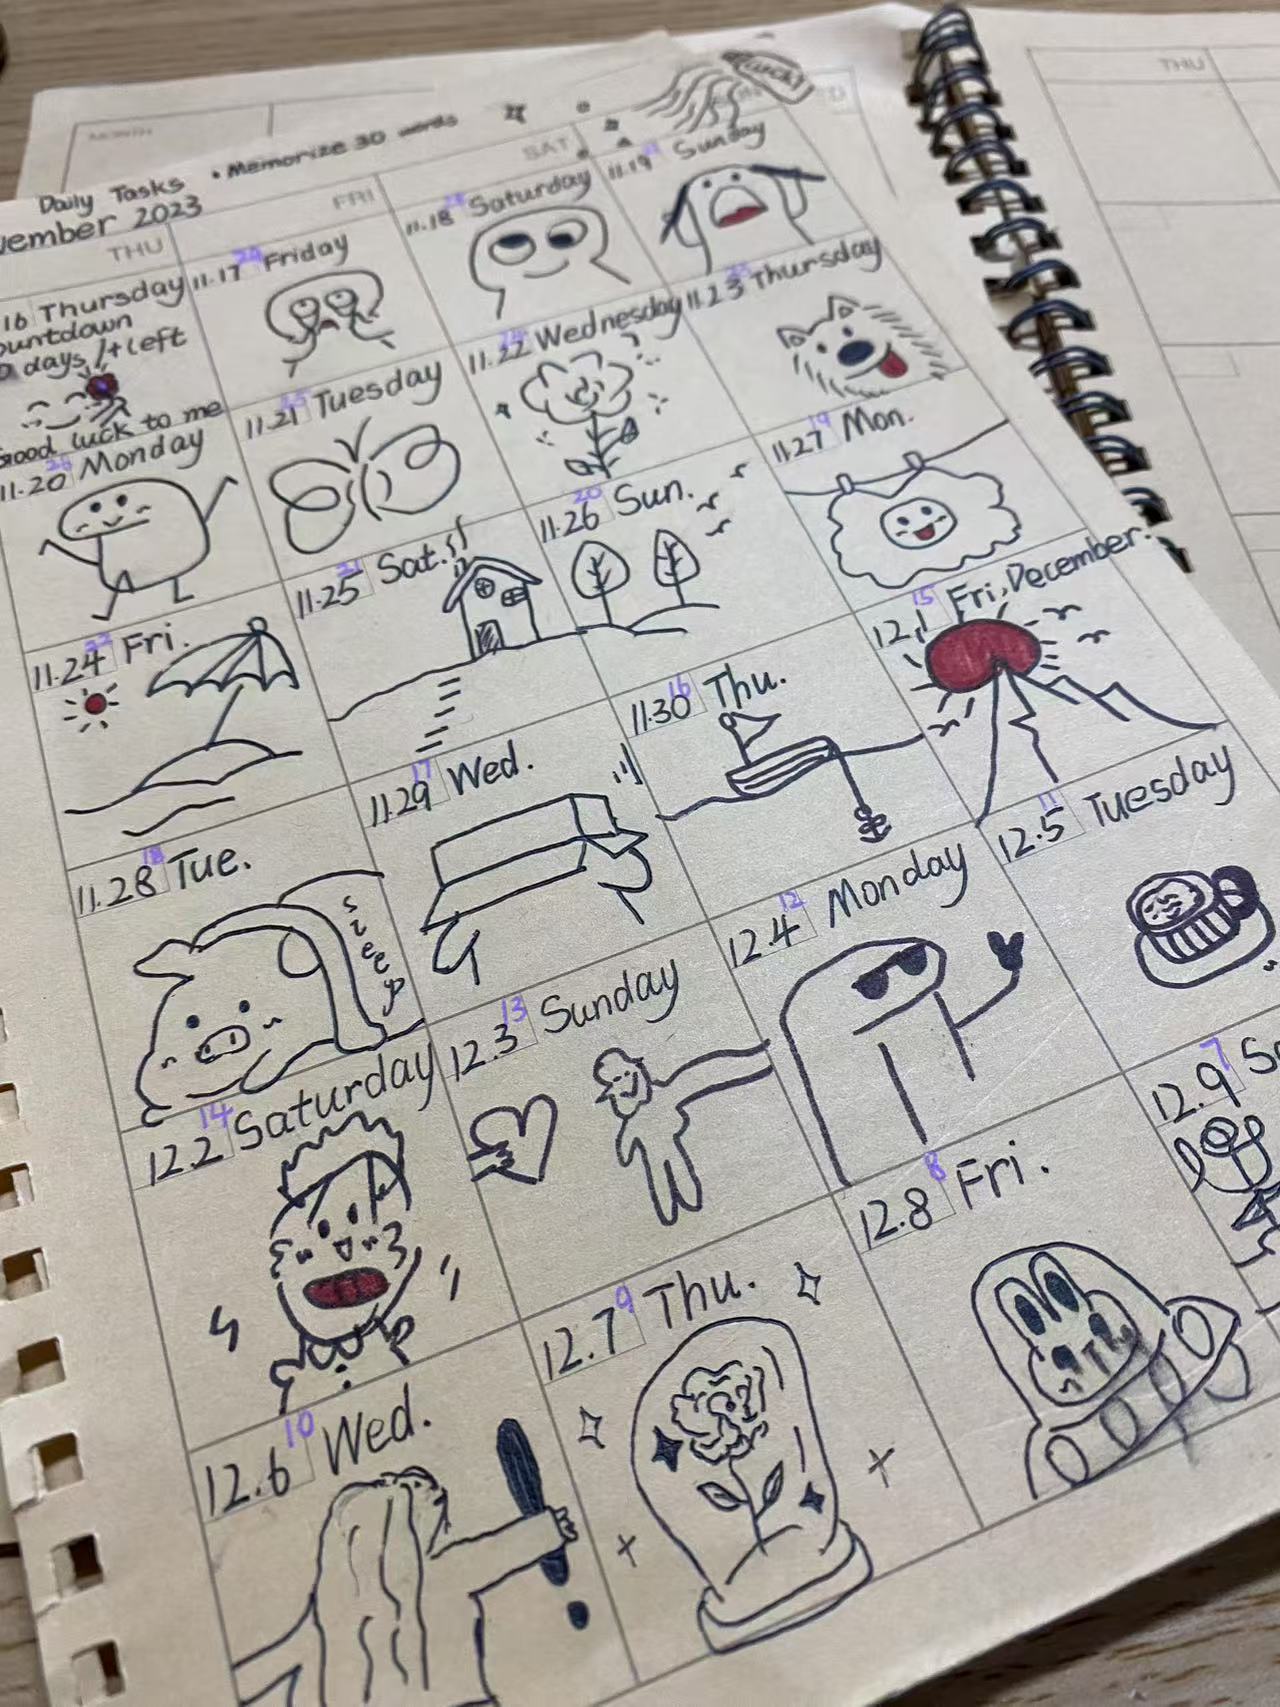 MONTH
THU
Daily Tasks • Memorize 30 words
vember 2023
THU
FRI
SAT
16 Thursday
ountdown
days 1+left
Good luck to me
11.17 Friday
11.18 Saturday
11.19 Sunday
11.20 26 Monday
11.21 25 Tuesday
11.22 24 Wednesday
11.23 23 Thursday
11.24 22 Fri.
11.25 21 Sat.
11.26 20 Sun.
11.27 19 Mon.
11.28 18 Tue.
sleep
11.29 17 Wed.
11.30 16 Thu.
12.1 15 Fri, December.
12.2 14 Saturday
12.3 13 Sunday
12.4 12 Monday
12.5 11 Tuesday
12.6 10 Wed.
12.7 9 Thu.
12.8 8 Fri.
12.9 7 S